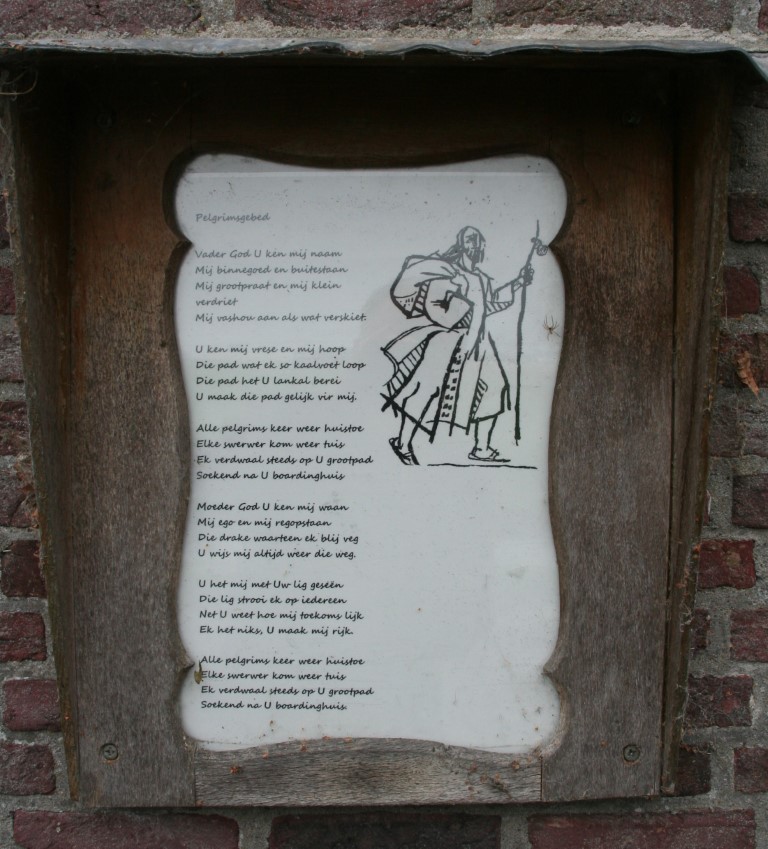 Pelgrimsgebed
Vader God U ken mij naam
Mij binnegoed en buitestaan
Mij grootpraat en mij klein
verdriet
Mij vashou aan als wat verskiet.
U ken mij vrese en mij hoop
Die pad wat ek so kaalvoet loop
Die pad het U lankal berei
U maak die pad gelijk vir mij.
Alle pelgrims keer weer huistoe
Elke swerwer kom weer tuis
Ek verdwaal steeds op U grootpad
Soekend na U boardinghuis
Moeder God U ken mij waan
Mij ego en mij regopstaan
Die drake waarteen ek blij veg
U wijs mij altijd weer die weg.
U het mij met Uw lig geseën
Die lig strooi ek op iedereen
Net U weet hoe mij toekoms lijk
Ek het niks, U maak mij rijk.
Alle pelgrims keer weer huistoe
Elke swerwer kom weer tuis
Ek verdwaal steeds op U grootpad
Soekend na U boardinghuis.